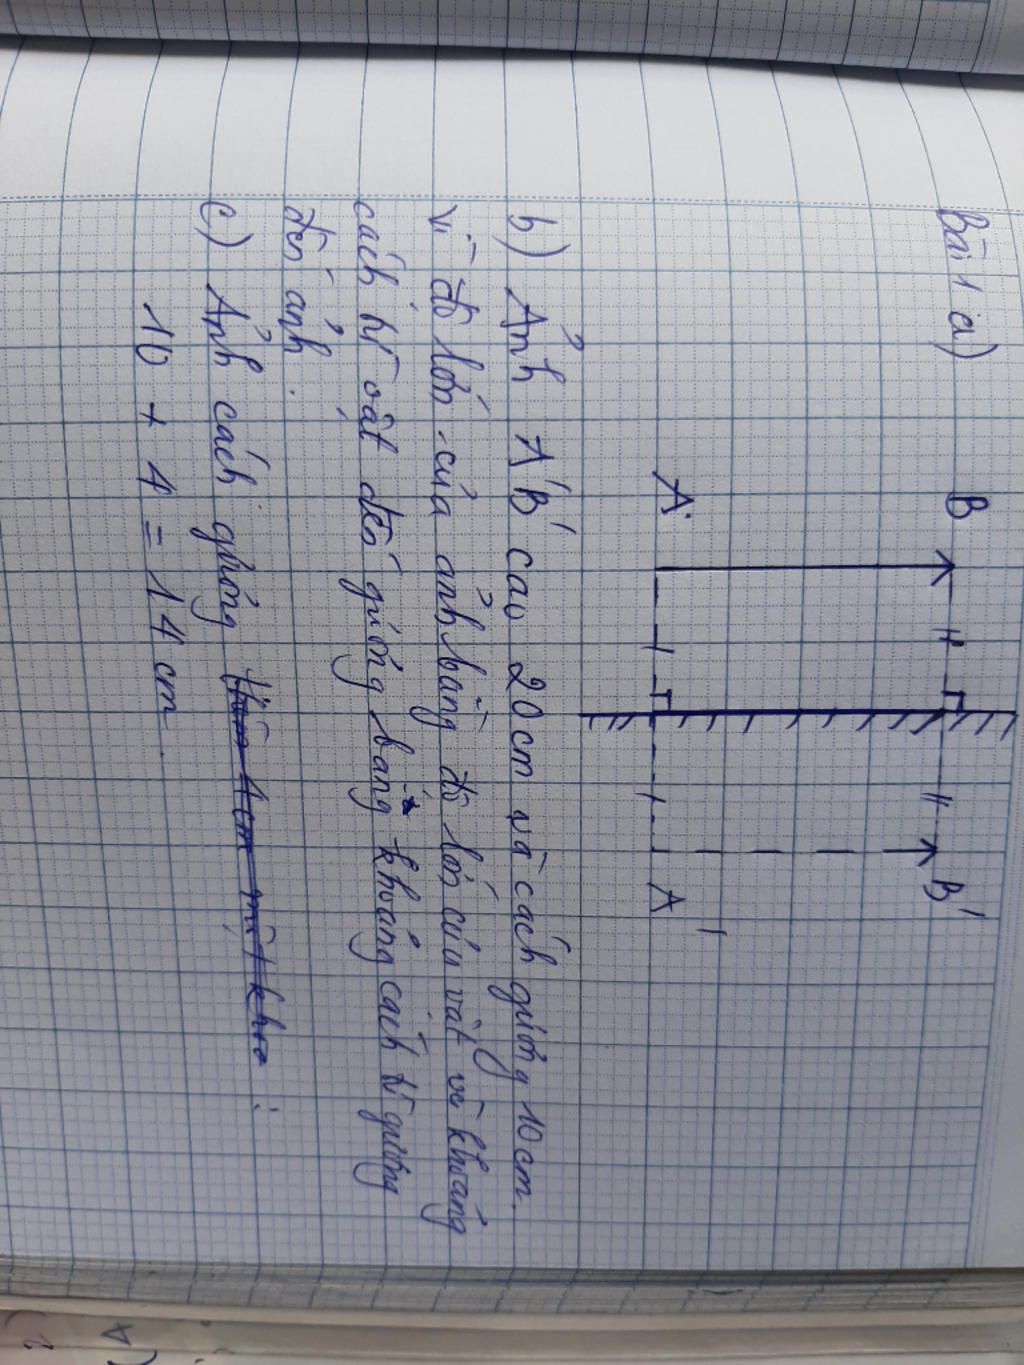 Bài 1 a)
B
B'
A
A'
b) Ảnh A'B' cao 20cm và cách gương 10cm.
Vì độ lớn của ảnh bằng độ lớn của vật và khoảng
cách từ vật đến gương bằng khoảng cách từ gương
đến ảnh.
c) Ảnh cách gương :
10 + 4 = 14 cm.